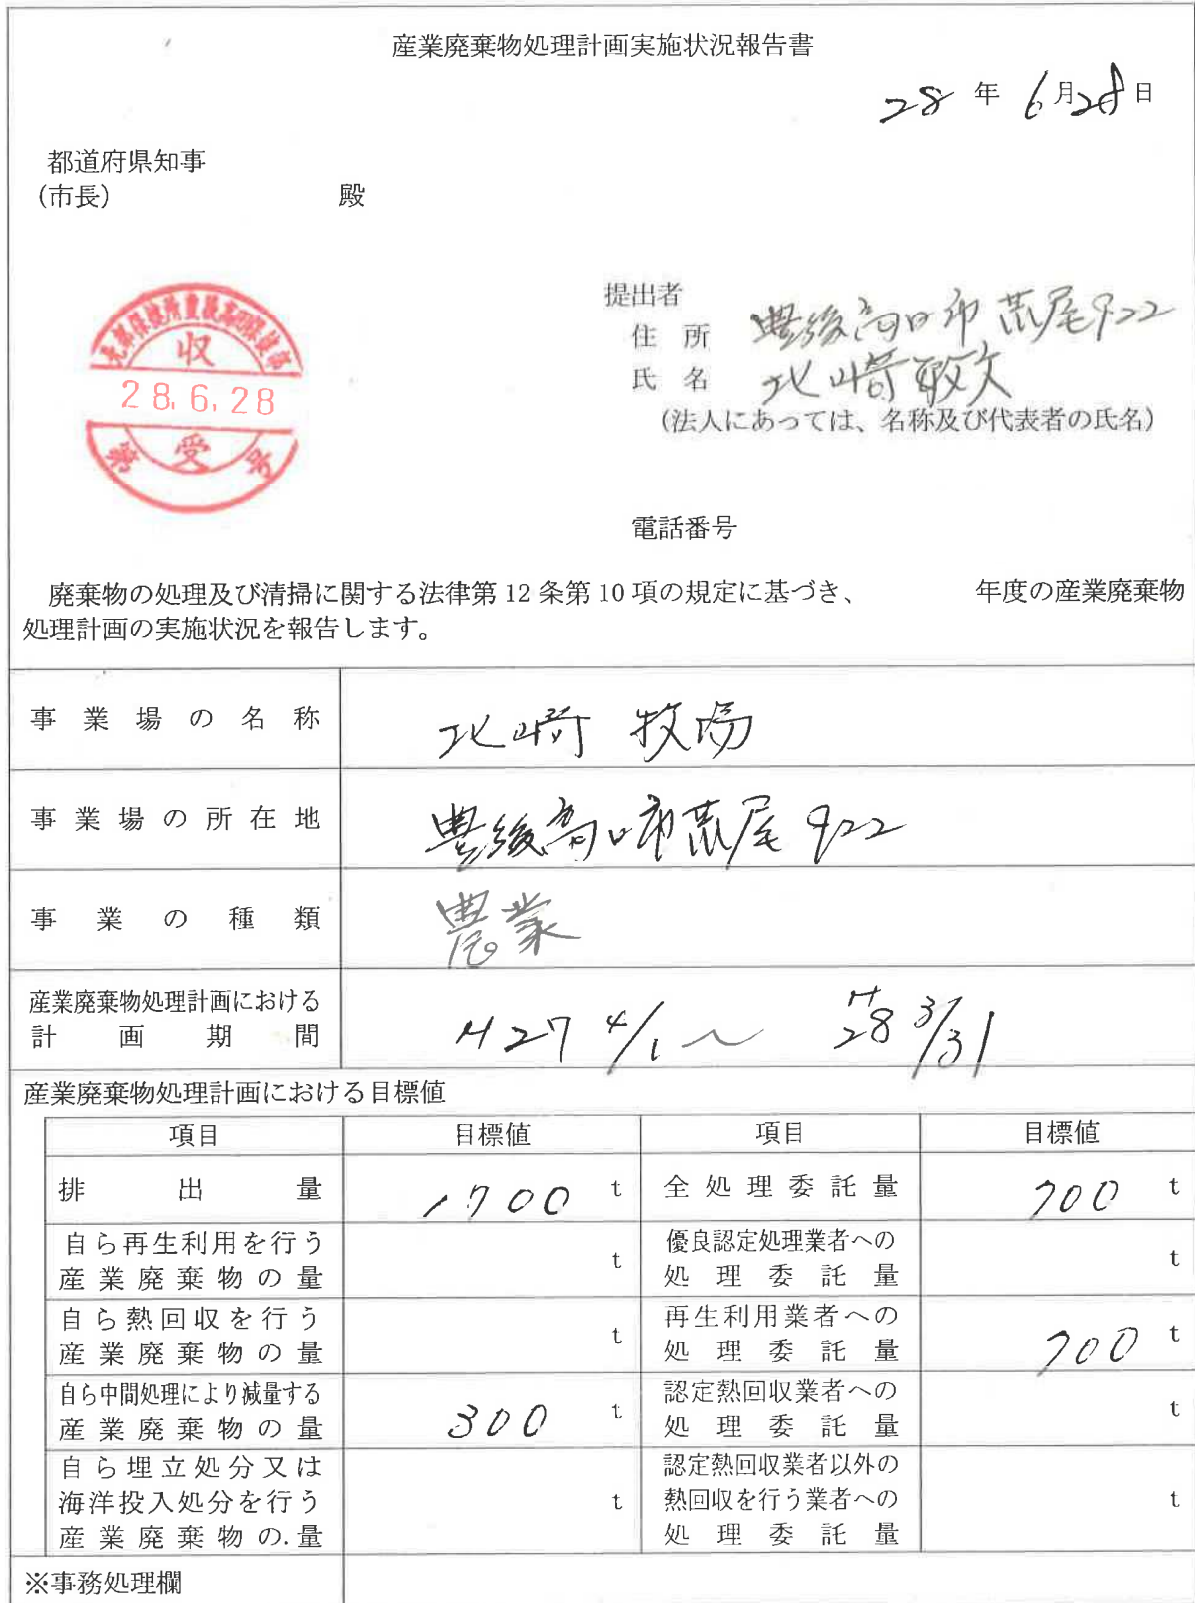 産業廃棄物処理計画実施状況報告書
28 年 6月28日
都道府県知事
(市長) 殿
提出者
住所 豊後高田市荒尾922
氏名 北崎敏文
(法人にあっては、名称及び代表者の氏名)
収
28.6.28
受
号
電話番号
廃棄物の処理及び清掃に関する法律第12条第10項の規定に基づき、 年度の産業廃棄物
処理計画の実施状況を報告します。
事業場の名称 北崎牧場
事業場の所在地 豊後高田市荒尾922
事業の種類 農業
産業廃棄物処理計画における
計画期間 H27 4/1 〜 H28 3/31
産業廃棄物処理計画における目標値
項目 目標値 項目 目標値
排出量 1700 t 全処理委託量 700 t
自ら再生利用を行う
産業廃棄物の量 t
優良認定処理業者への
処理委託量 t
自ら熱回収を行う
産業廃棄物の量 t
再生利用業者への
処理委託量 700 t
自ら中間処理により減量する
産業廃棄物の量 300 t
認定熱回収業者への
処理委託量 t
自ら埋立処分又は
海洋投入処分を行う
産業廃棄物の.量 t
認定熱回収業者以外の
熱回収を行う業者への
処理委託量 t
※事務処理欄